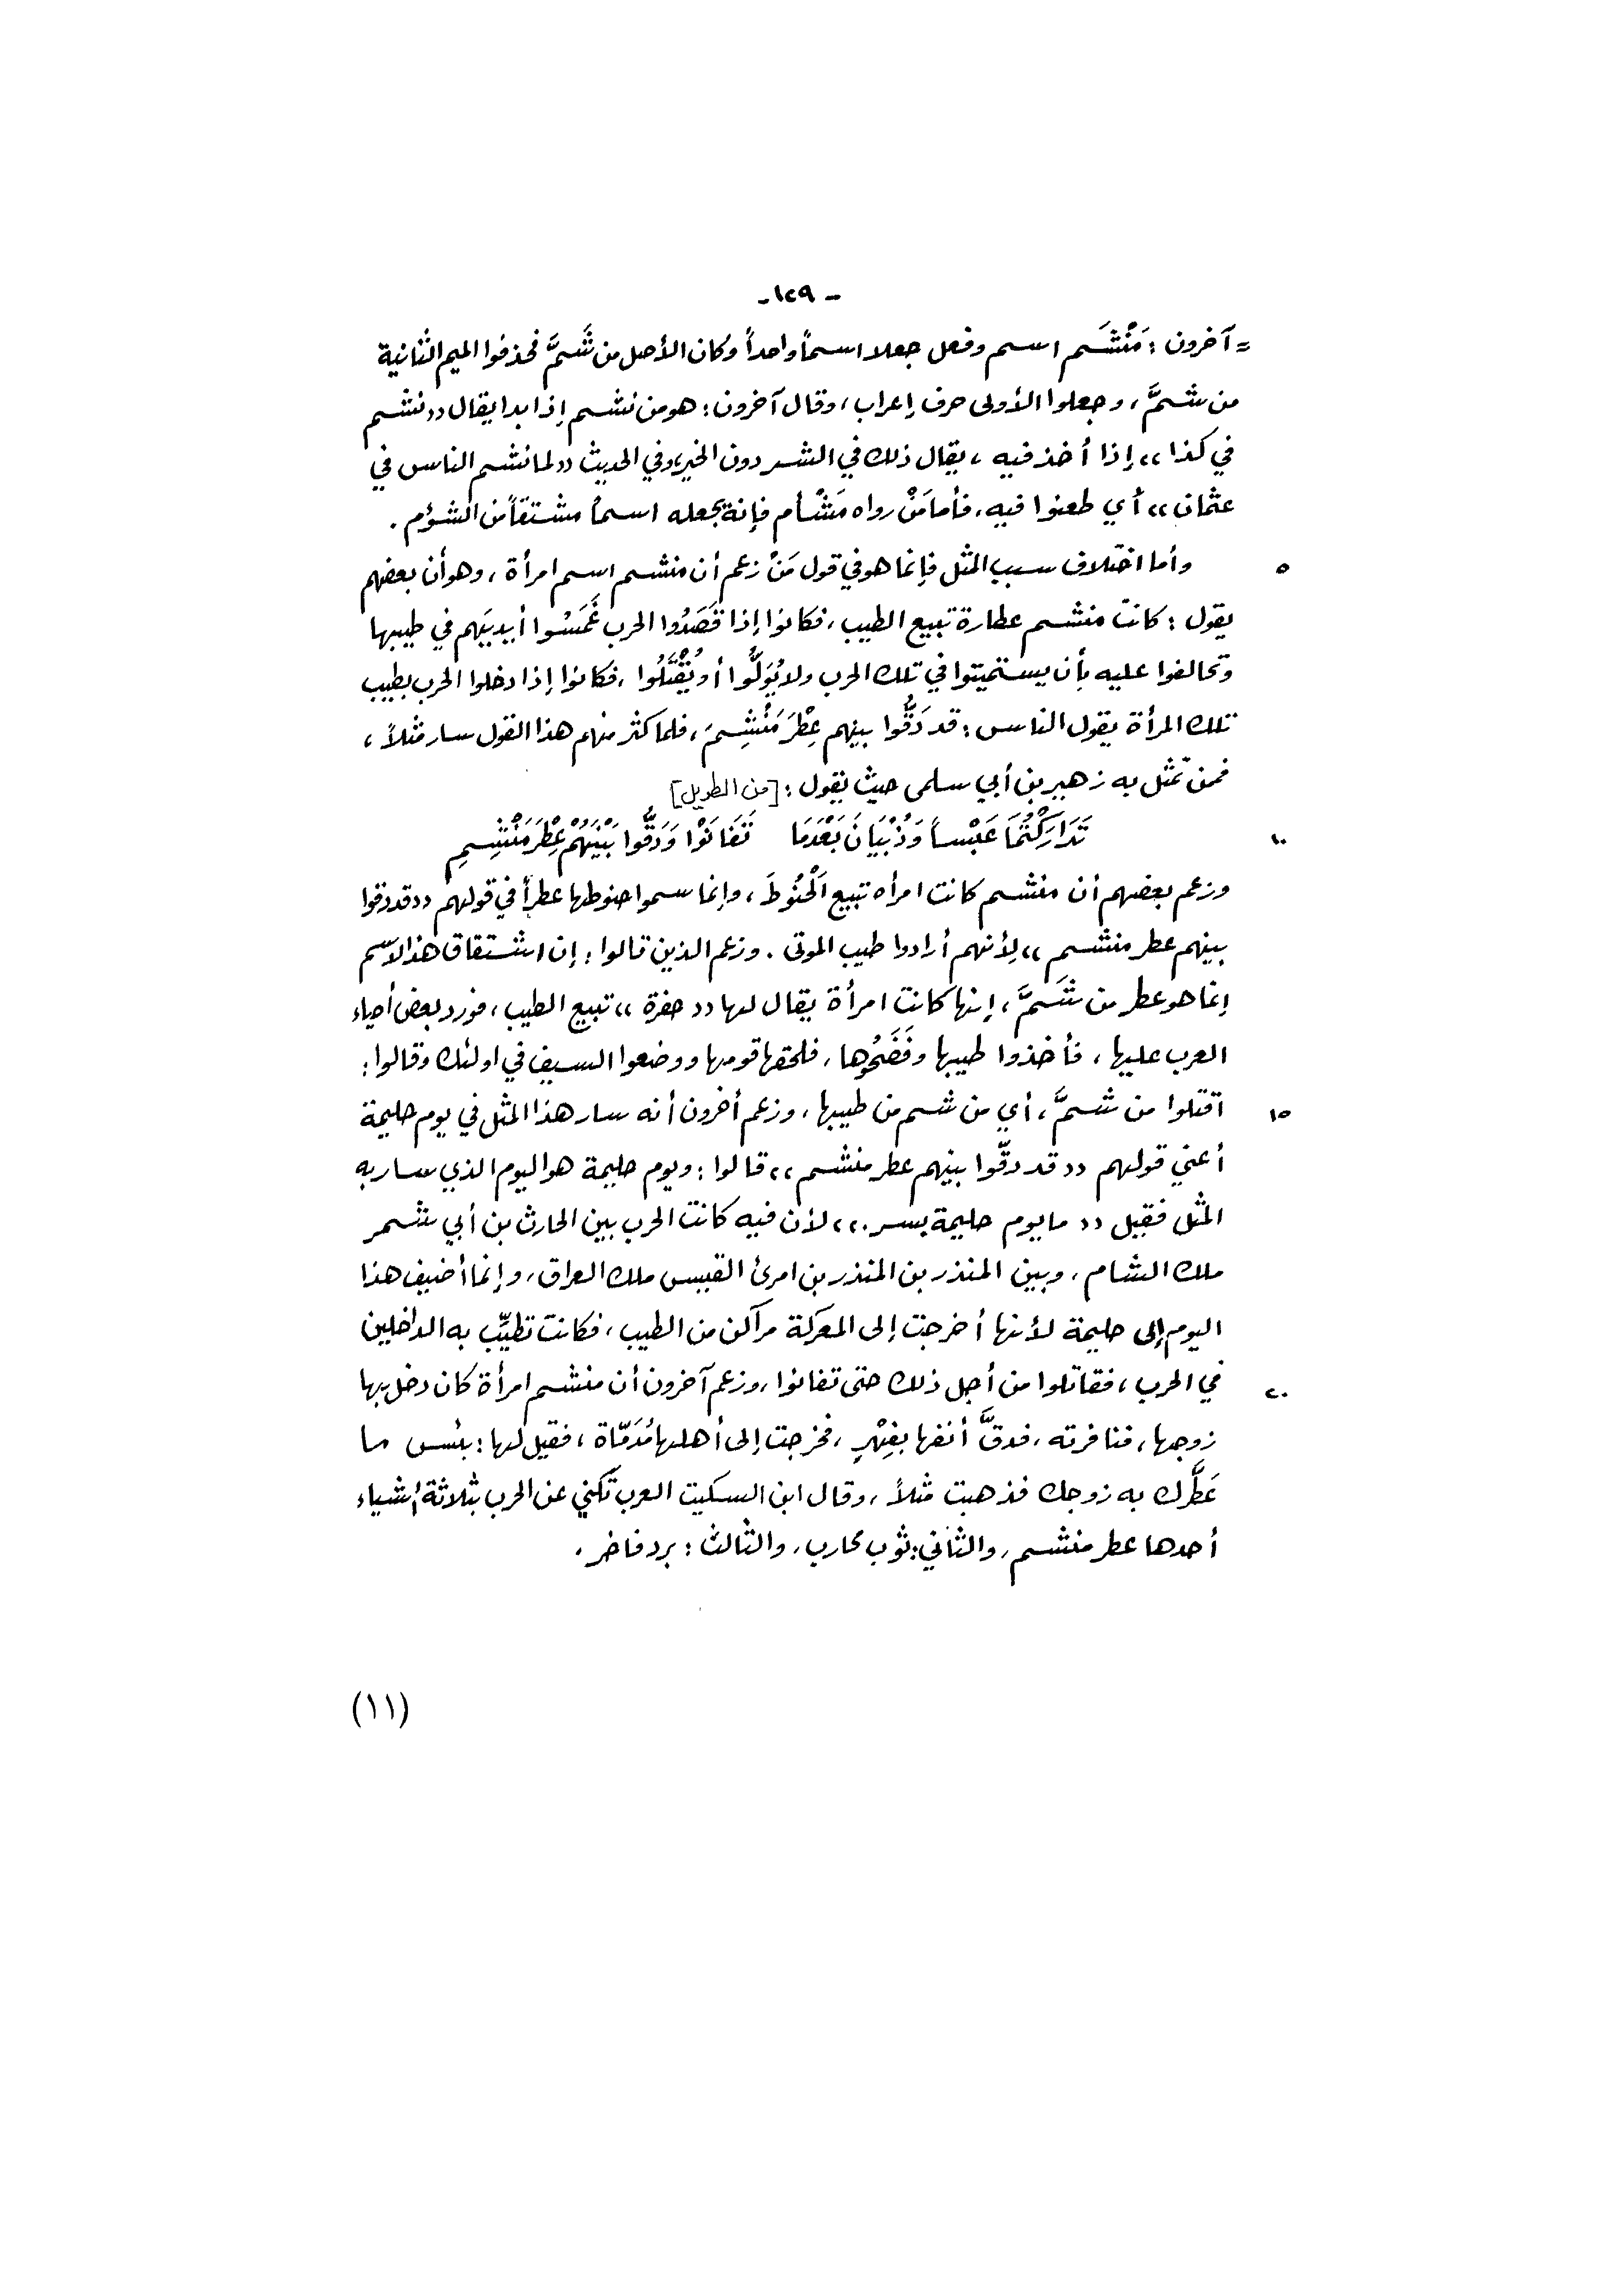 - ١٢٩ -
= آخرون : مَنْشَم اسم وفعل جعلا اسماً واحداً وكان الأصل من شَمَّ فحذفوا الميم الثانية
من شمَّ ، وجعلوا الأولى حرف إعراب ، وقال آخرون : هو من نشم إذا بدا يقال «نشم
في كذا» إذا أخذ فيه ، يقال ذلك في الشر دون الخير، وفي الحديث «لما نشم الناس في
عثمان» أي طعنوا فيه . فأما مَنْ رواه مَشْأم فإنه يجعله اسماً مشتقاً من الشؤم .
٥ وأما اختلاف سبب المثل فإنما هو في قول مَنْ زعم أن منشم اسم امرأة ، وهو أن بعضهم
يقول : كانت منشم عطارة تبيع الطيب ، فكانوا إذا قَصَدُوا الحرب غَمَسُوا أيديَهم في طيبها
وتحالفوا عليه بأن يستميتوا في تلك الحرب ولا يُوَلُّوا أو يُقْتَلُوا ، فكانوا إذا دخلوا الحرب بطيب
تلك المرأة يقول الناس : قد دَقُّوا بينهم عِطْرَ مَنْشِمَ ، فلما كثر منهم هذا القول سار مثلاً ،
فمن تمثل به زهير بن أبي سلمى حيث يقول : [من الطويل]
١٠ تَدَارَكْتُمَا عَبْساً وَذُبْيَانَ بَعْدَمَا تَفَانَوْا وَدَقُّوا بَيْنَهُمْ عِطْرَ مَنْشِمِ
وزعم بعضهم أن منشم كانت امرأه تبيع اَلْحَنُوطَ ، وإنما سموا حنوطها عطراً في قولهم «قد دقوا
بينهم عطر منشم» لأنهم أرادوا طيب الموتى . وزعم الذين قالوا : إن اشتقاق هذا لاسم
إنما هو عطر من شَمَّ ، إنها كانت امرأة يقال لها «خفرة» تبيع الطيب ، فورد بعض أحياء
العرب عليها ، فأخذوا طيبها وفَضَحُوها ، فلحقها قومها ووضعوا السيف في اولئك وقالوا :
١٥ اقتلوا من شمَّ ، أي من شم من طيبها ، وزعم أخرون أنه سار هذا المثل في يوم حليمة
أعني قولهم «قد دقّوا بينهم عطر منشم» قالوا : ويوم حليمة هو اليوم الذي سار به
المثل فقيل «ما يوم حليمة بسر .» لأن فيه كانت الحرب بين الحارث بن أبي شمر
ملك الشام ، وبين المنذر بن المنذر بن امرئ القيس ملك العراق ، وإنما أضيف هذا
اليوم إلى حليمة لأنها أخرجت إلى المعركة مراكن من الطيب ، فكانت تطيِّب به الداخلين
٢٠ في الحرب ، فقاتلوا من أجل ذلك حتى تفانوا ، وزعم آخرون أن منشم امرأة كان دخل بها
زوجها ، فنافرته ، فدقَّ أنفها بفِهْرٍ ، فخرجت إلى أهلها مُدَمّاة ، فقيل لها : بئس ما
عَطَّرك به زوجك فذهبت مثلاً ، وقال ابن السكيت العرب تكني عن الحرب بثلاثة أشياء
أحدها عطر منشم ، والثاني : ثوب محارب ، والثالث : برد فاخر .
(١١)